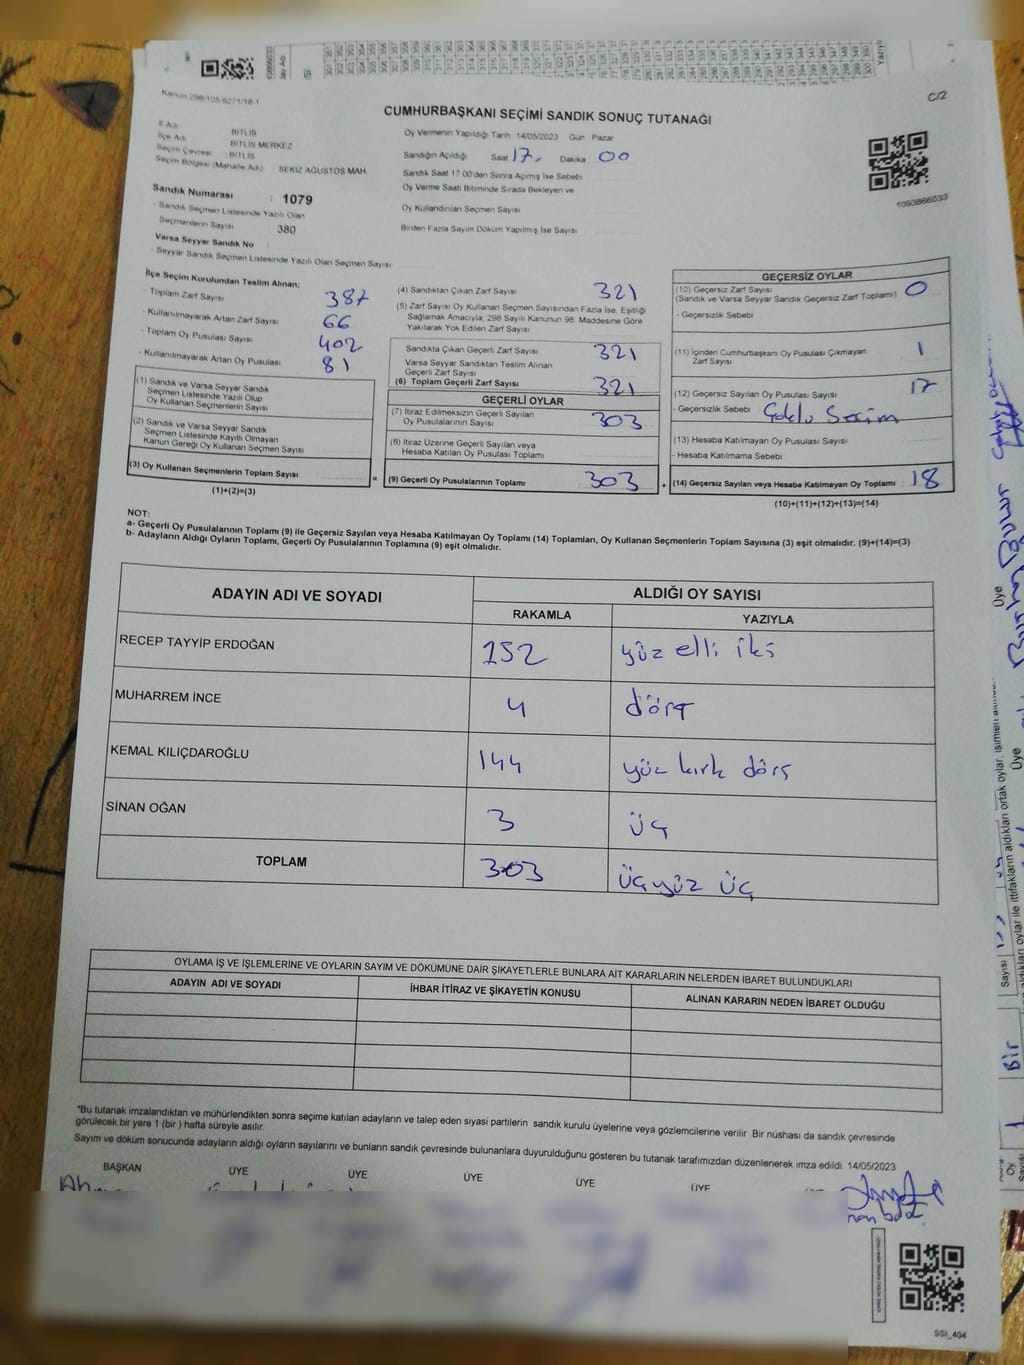 Kanun:298/105,6271/18-1
C/2
CUMHURBAŞKANI SEÇİMİ SANDIK SONUÇ TUTANAĞI
İl Adı : BİTLİS
İlçe Adı : BİTLİS MERKEZ
Seçim Çevresi : BİTLİS
Seçim Bölgesi (Mahalle Adı) : SEKİZ AĞUSTOS MAH
Sandık Numarası : 1079
- Sandık Seçmen Listesinde Yazılı Olan
Seçmenlerin Sayısı : 380
Varsa Seyyar Sandık No :
- Seyyar Sandık Seçmen Listesinde Yazılı Olan Seçmen Sayısı
Oy Vermenin Yapıldığı Tarih 14/05/2023 Gün Pazar
Sandığın Açıldığı Saat 17. Dakika 00
Sandık Saat 17:00'den Sonra Açımış İse Sebebi
Oy Verme Saati Bitiminde Sırada Bekleyen ve
Oy Kullandırılan Seçmen Sayısı
Birden Fazla Sayım Döküm Yapılmış İse Sayısı
1093866033
İlçe Seçim Kurulundan Teslim Alınan;
- Toplam Zarf Sayısı 387
- Kullanılmayarak Artan Zarf Sayısı 66
- Toplam Oy Pusulası Sayısı 402
- Kullanılmayarak Artan Oy Pusulası 81
(1) Sandık ve Varsa Seyyar Sandık
Seçmen Listesinde Yazılı Olup
Oy Kullanan Seçmenlerin Sayısı
(2) Sandık ve Varsa Seyyar Sandık
Seçmen Listesinde Kayıtlı Olmayan
Kanun Gereği Oy Kullanan Seçmen Sayısı
(3) Oy Kullanan Seçmenlerin Toplam Sayısı
(1)+(2)=(3)
(4) Sandıktan Çıkan Zarf Sayısı 321
(5) Zarf Sayısı Oy Kullanan Seçmen Sayısından Fazla İse, Eşitliği
Sağlamak Amacıyla, 298 Sayılı Kanunun 98. Maddesine Göre
Yakılarak Yok Edilen Zarf Sayısı
Sandıkta Çıkan Geçerli Zarf Sayısı 321
Varsa Seyyar Sandıktan Teslim Alınan
Geçerli Zarf Sayısı
(6) Toplam Geçerli Zarf Sayısı 321
GEÇERLİ OYLAR
(7) İtiraz Edilmeksizin Geçerli Sayılan
Oy Pusulalarının Sayısı 303
(8) İtiraz Üzerine Geçerli Sayılan veya
Hesaba Katılan Oy Pusulası Toplamı
= (9) Geçerli Oy Pusulalarının Toplamı : 303 +
GEÇERSİZ OYLAR
(10) Geçersiz Zarf Sayısı 0
(Sandık ve Varsa Seyyar Sandık Geçersiz Zarf Toplamı)
- Geçersizlik Sebebi
(11) İçinden Cumhurbaşkanı Oy Pusulası Çıkmayan 1
Zarf Sayısı
(12) Geçersiz Sayılan Oy Pusulası Sayısı 17
- Geçersizlik Sebebi Çoklu Seçim
(13) Hesaba Katılmayan Oy Pusulası Sayısı
- Hesaba Katılmama Sebebi
(14) Geçersiz Sayılan veya Hesaba Katılmayan Oy Toplamı : 18
(10)+(11)+(12)+(13)=(14)
NOT:
a- Geçerli Oy Pusulalarının Toplamı (9) ile Geçersiz Sayılan veya Hesaba Katılmayan Oy Toplamı (14) Toplamları, Oy Kullanan Seçmenlerin Toplam Sayısına (3) eşit olmalıdır. (9)+(14)=(3)
b- Adayların Aldığı Oyların Toplamı, Geçerli Oy Pusulalarının Toplamına (9) eşit olmalıdır.
ADAYIN ADI VE SOYADI
ALDIĞI OY SAYISI
RAKAMLA YAZIYLA
RECEP TAYYİP ERDOĞAN 152 yüz elli iki
MUHARREM İNCE 4 dört
KEMAL KILIÇDAROĞLU 144 yüz kırk dört
SİNAN OĞAN 3 üç
TOPLAM 303 üçyüz üç
OYLAMA İŞ VE İŞLEMLERİNE VE OYLARIN SAYIM VE DÖKÜMÜNE DAİR ŞİKAYETLERLE BUNLARA AİT KARARLARIN NELERDEN İBARET BULUNDUKLARI
ADAYIN ADI VE SOYADI İHBAR İTİRAZ VE ŞİKAYETİN KONUSU ALINAN KARARIN NEDEN İBARET OLDUĞU
*Bu tutanak imzalandıktan ve mühürlendikten sonra seçime katılan adayların ve talep eden siyasi partilerin sandık kurulu üyelerine veya gözlemcilerine verilir. Bir nüshası da sandık çevresinde
görülecek bir yere 1 (bir ) hafta süreyle asılır.
Sayım ve döküm sonucunda adayların aldığı oyların sayılarını ve bunların sandık çevresinde bulunanlara duyurulduğunu gösteren bu tutanak tarafımızdan düzenlenerek imza edildi. 14/05/2023
BAŞKAN ÜYE ÜYE ÜYE ÜYE ÜYE
SSI_404
Üye
Üye
Sayısı
Bir